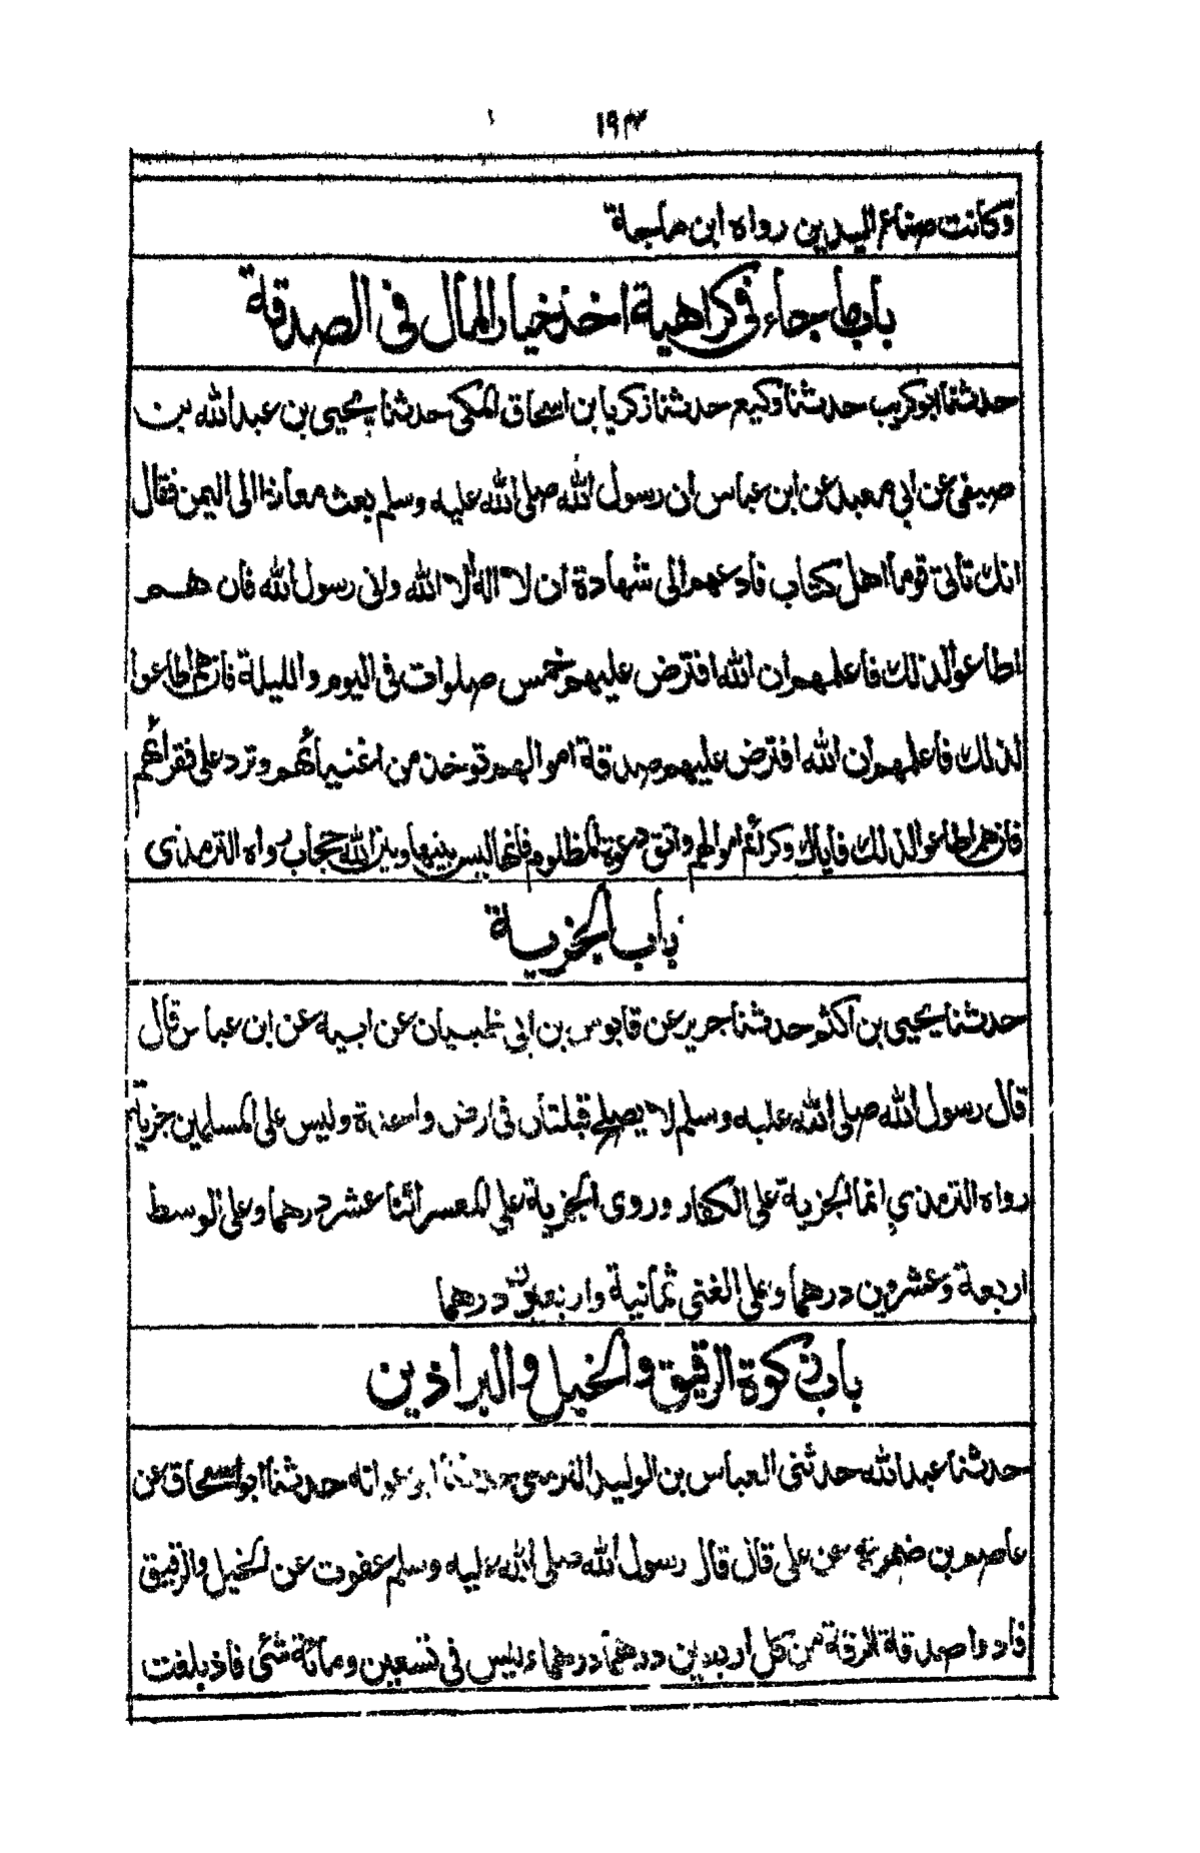 ١٩٣
وكانت صناع اليدين رواه ابن ماجة
باب ما جاء في كراهية اخذ خيار المال في الصدقة
حدثنا ابو كريب حدثنا وكيع حدثنا زكريا بن اسحاق المكي حدثنا يحيى بن عبد الله بن
صيفي عن ابي معبد عن ابن عباس ان رسول الله صلى الله عليه وسلم بعث معاذا الى اليمن فقال
انك تأتي قوما اهل كتاب فادعهم الى شهادة ان لا اله الا الله واني رسول الله فان هم
اطاعوا لذلك فاعلمهم ان الله افترض عليهم خمس صلوات في اليوم والليلة فان هم اطاعوا
لذلك فاعلمهم ان الله افترض عليهم صدقة اموالهم تؤخذ من اغنيائهم وترد على فقرائهم
فان هم اطاعوا لذلك فاياك وكرائم اموالهم واتق دعوة المظلوم فانها ليس بينها وبين الله حجاب رواه الترمذي
باب الجزية
حدثنا يحيى بن اكثم حدثنا جرير عن قابوس بن ابي ظبيان عن ابيه عن ابن عباس قال
قال رسول الله صلى الله عليه وسلم لا يصلح قبلتان في ارض واحدة وليس على المسلمين جزية
رواه الترمذي انما الجزية على الكفار وروى الجزية على المعسر اثنا عشر درهما وعلى الوسط
اربعة وعشرون درهما وعلى الغني ثمانية واربعون درهما
باب زكوة الرقيق والخيل والبراذين
حدثنا عبد الله حدثني العباس بن الوليد النرسي حدثنا ابو عوانة حدثنا ابو اسحاق عن
عاصم بن ضمرة عن علي قال قال رسول الله صلى الله عليه وسلم عفوت عن الخيل والرقيق
فادوا صدقة الرقة من كل اربعين درهما درهما وليس في تسعين ومائة شئ فاذ بلغت